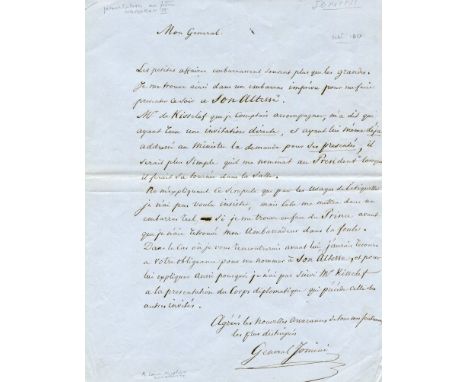 Mon General.
Les petites affaires embarrassent souvent plus que les grandes.
Je me trouve ainsi dans un embarras imprévu pour me faire
presenter ce soir a Son Altesse.
Mr de Kisselef que je comptais accompagner, m'a dit que
ayant reçu une invitation directe, et ayant lui même déja
addressé au Ministre la demande pour ses presentés, il
serait plus simple qu'il me nommat au President lorsque
il ferait sa tournée dans la salle.
Ne m'expliquant ce scrupule que par les usages de l'etiquette
je n'ai pas voulu insister, mais cela me mettra dans un
embarras réel si je me trouve en face du Prince avant
que je n'aie retrouvé mon Ambassadeur dans la foule.
Dans le cas où je vous rencontrerais avant lui, j'aurai recours
a votre obligeance pour me nommer à Son Altesse et pour
lui expliquer aussi pourquoi je n'ai pas suivi Mr Kisselef
a la presentation du Corps diplomatique qui précéde celle des
autres invités.
Agréez les nouvelles assurances de tous mes sentimens
les plus distingués
General Jomini